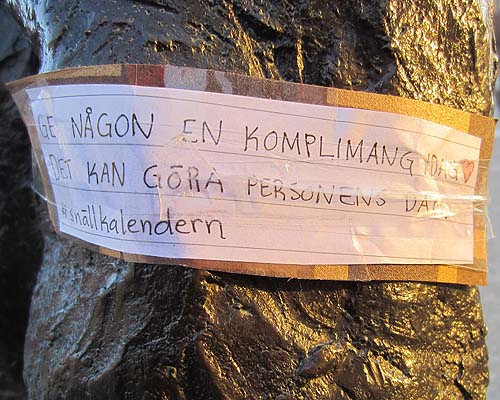 GE NÅGON EN KOMPLIMANG IDAG
DET KAN GÖRA PERSONENS DAG
#snällkalendern